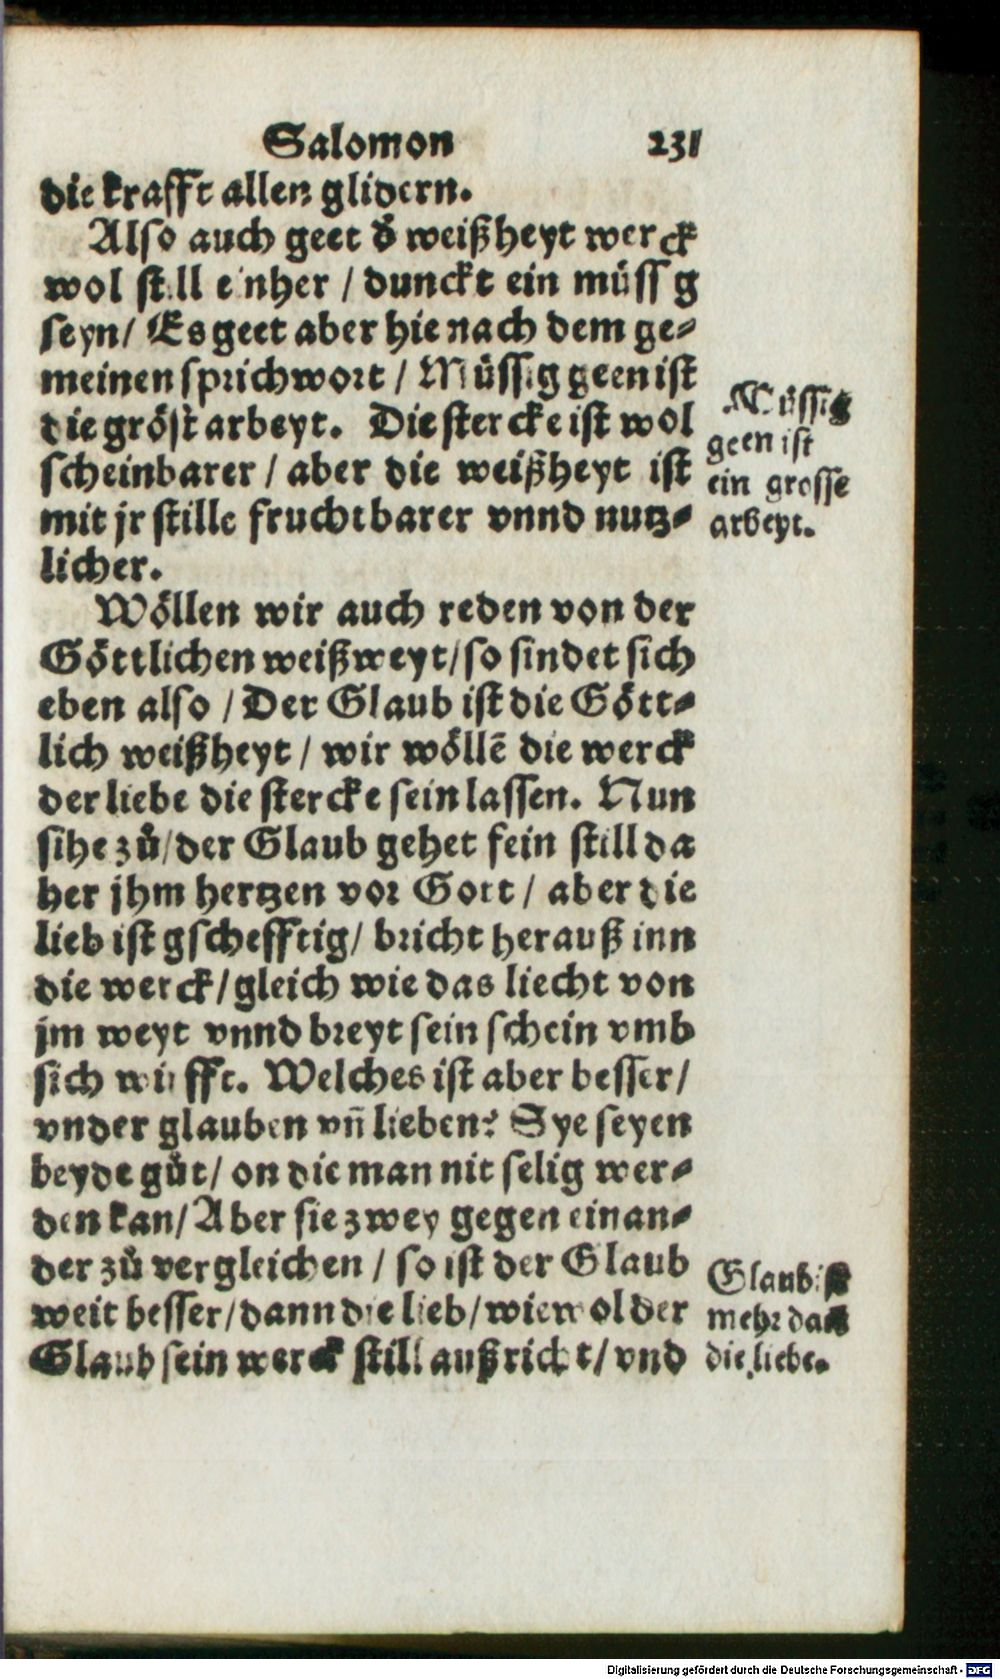 Salomon 231
die krafft allen glidern.
Also auch geet d̕ weißheyt werck
wol still einher / dunckt ein müssig
seyn / Es geet aber hie nach dem ge⸗
meinen sprichwort / Müssig geen ist
die gröst arbeyt. Die stercke ist wol
scheinbarer / aber die weißheyt ist
mit jr stille fruchtbarer vnnd nutz⸗
licher.
Müssig
geen ist
ein grosse
arbeyt.
Wöllen wir auch reden von der
Göttlichen weißweyt / so findet sich
eben also / Der Glaub ist die Gött⸗
lich weißheyt / wir wöllē die werck
der liebe die stercke sein lassen. Nun
sihe zů / der Glaub gehet fein still da
her jhm hertzen vor Gott / aber die
lieb ist gschefftig / bricht herauß inn
die werck / gleich wie das liecht von
jm weyt vnnd breyt sein schein vmb
sich wirfft. Welches ist aber besser /
vnder glauben vñ lieben? Sye seyen
beyde gůt / on die man nit selig wer⸗
den kan / Aber sie zwey gegen einan⸗
der zů vergleichen / so ist der Glaub
weit besser / dann die lieb / wiewol der
Glaub sein werck still außricht / vnd
Glaub ist
mehr dañ
die liebe.
Digitalisierung gefördert durch die Deutsche Forschungsgemeinschaft - DFG